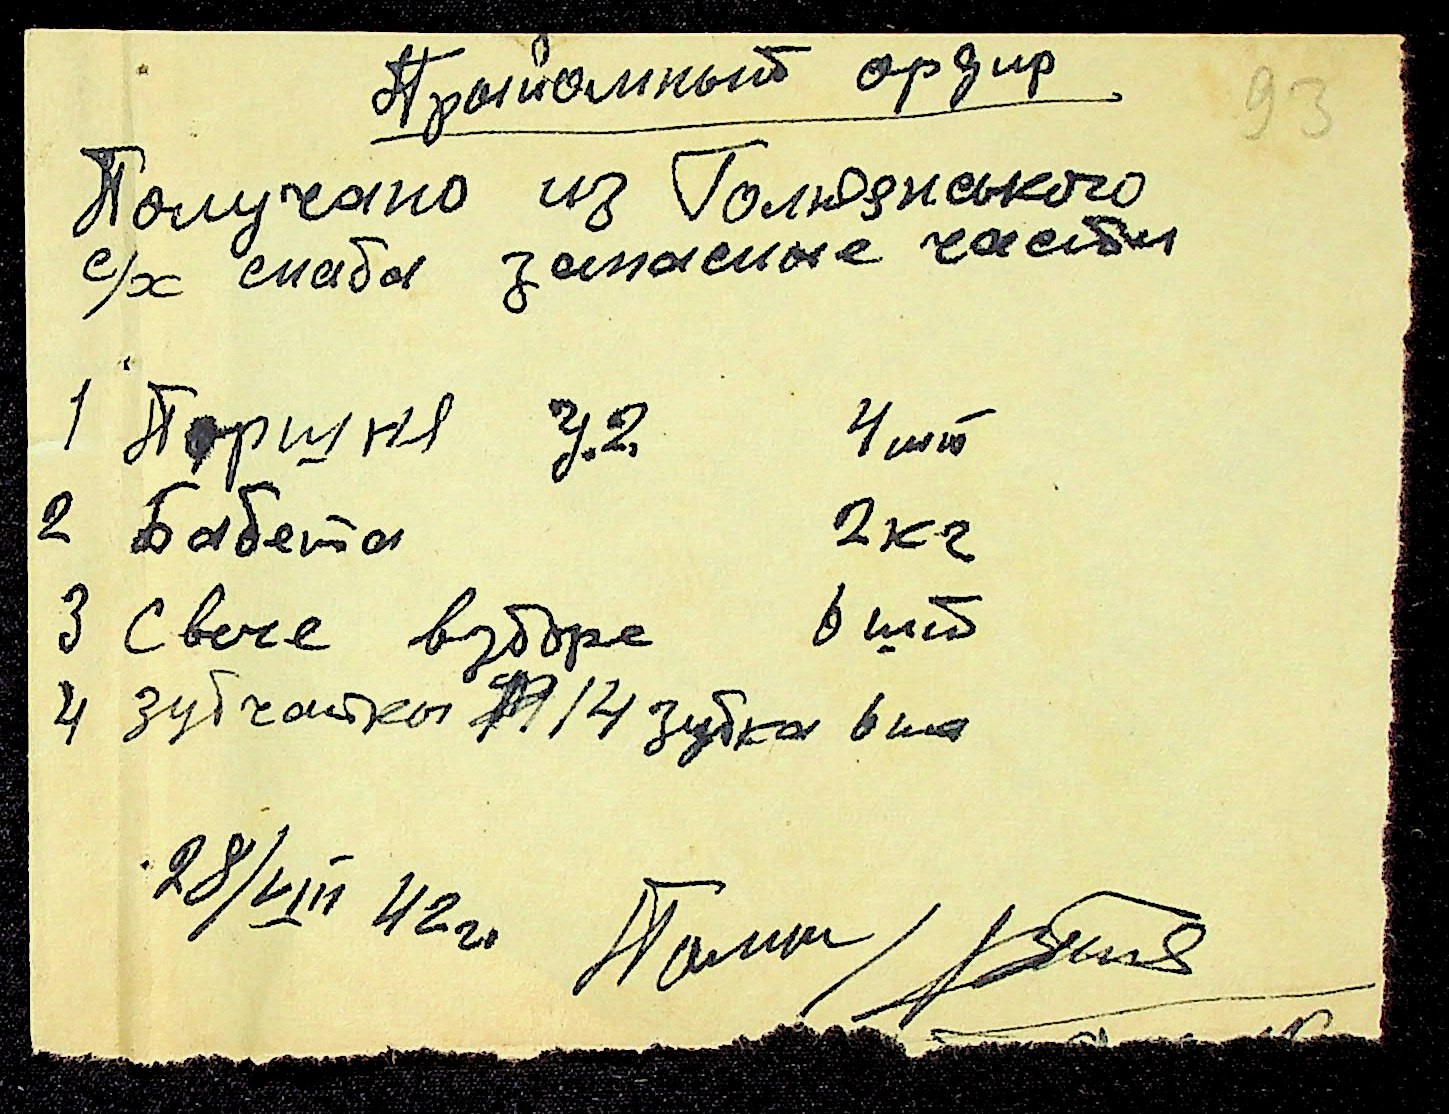 Прыйомный ордир
93
Получано из Голюзнського
с/х снаба запасные части
1 Поршня У.2. 4 шт
2 Бабета 2 кг
3 Свече взборе 6 шт
4 зубчатки 14 зубка 6 шт
28/VIII 42 г.